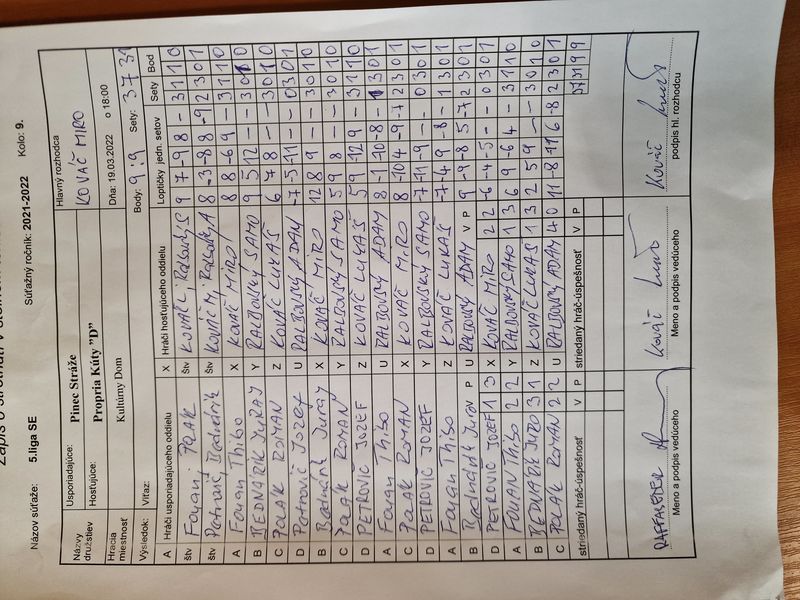 Zápis o stretnutí v stolnom
Názov súťaže: 5.liga SE Súťažný ročník: 2021-2022 Kolo: 9.
Názvy družstiev Usporiadajúce: Pinec Stráže Hlavný rozhodca
Hosťujúce: Propria Kúty "D" KOVÁČ MIRO
Hracia miestnosť Kultúrny Dom Dňa: 19.03.2022 o 18:00
Výsledok: Víťaz: Body: 9:9 Sety: 37:31
A Hráči usporiadajúceho oddielu X Hráči hosťujúceho oddielu Loptičky jedn. setov Sety Bod
štv štv KOVÁČ L, 9 7 -9 8 - 3 1 1 0
štv štv KOVÁČ M, 8 -3 -8 8 -9 2 3 0 1
A Fovan Thibo X KOVÁČ MIRO 8 8 -6 9 - 3 1 1 0
B BEDNÁRIK JURAJ Y RALBOVSKÝ SAMO 9 5 12 - - 3 0 1 0
C POLÁK ROMAN Z KOVÁČ LUKÁŠ 6 7 8 - - 3 0 1 0
D Petrovič Jozef U RALBOVSKÝ ADAM -7 -5 -11 - - 0 3 0 1
B Bednárik Juraj X KOVÁČ MIRO 12 8 9 - - 3 0 1 0
C POLÁK ROMAN Y RALBOVSKÝ SAMO 5 9 8 - - 3 0 1 0
D PETROVIČ JOZEF Z KOVÁČ LUKÁŠ 5 9 -12 9 - 3 1 1 0
A Fovan Thibo U RALBOVSKÝ ADAM 8 -1 -10 -8 - 1 3 0 1
C POLÁK ROMAN X KOVÁČ MIRO 8 -10 4 -9 -7 2 3 0 1
D PETROVIČ JOZEF Y RALBOVSKÝ SAMO -7 -11 -9 - - 0 3 0 1
A Fovan Thibo Z KOVÁČ LUKÁŠ -7 -4 9 -8 - 1 3 0 1
B Bednárik Juraj V P U RALBOVSKÝ ADAM V P 9 -9 -8 5 -7 2 3 0 1
D PETROVIČ JOZEF 1 3 X KOVÁČ MIRO 2 2 -6 -4 -5 - - 0 3 0 1
A FOVAN THIBO 2 2 Y RALBOVSKÝ SAMO 1 3 6 9 -6 4 - 3 1 1 0
B BEDNÁRIK JURO 3 1 Z KOVÁČ LUKÁŠ 1 3 2 5 9 - - 3 0 1 0
C POLÁK ROMAN 2 2 U RALBOVSKÝ ADAM 4 0 11 -8 -11 6 -8 2 3 0 1
striedaný hráč-úspešnosť V P striedaný hráč-úspešnosť V P 37 31 9 9
Kováč Kováč
Meno a podpis vedúceho Meno a podpis vedúceho podpis hl. rozhodcu